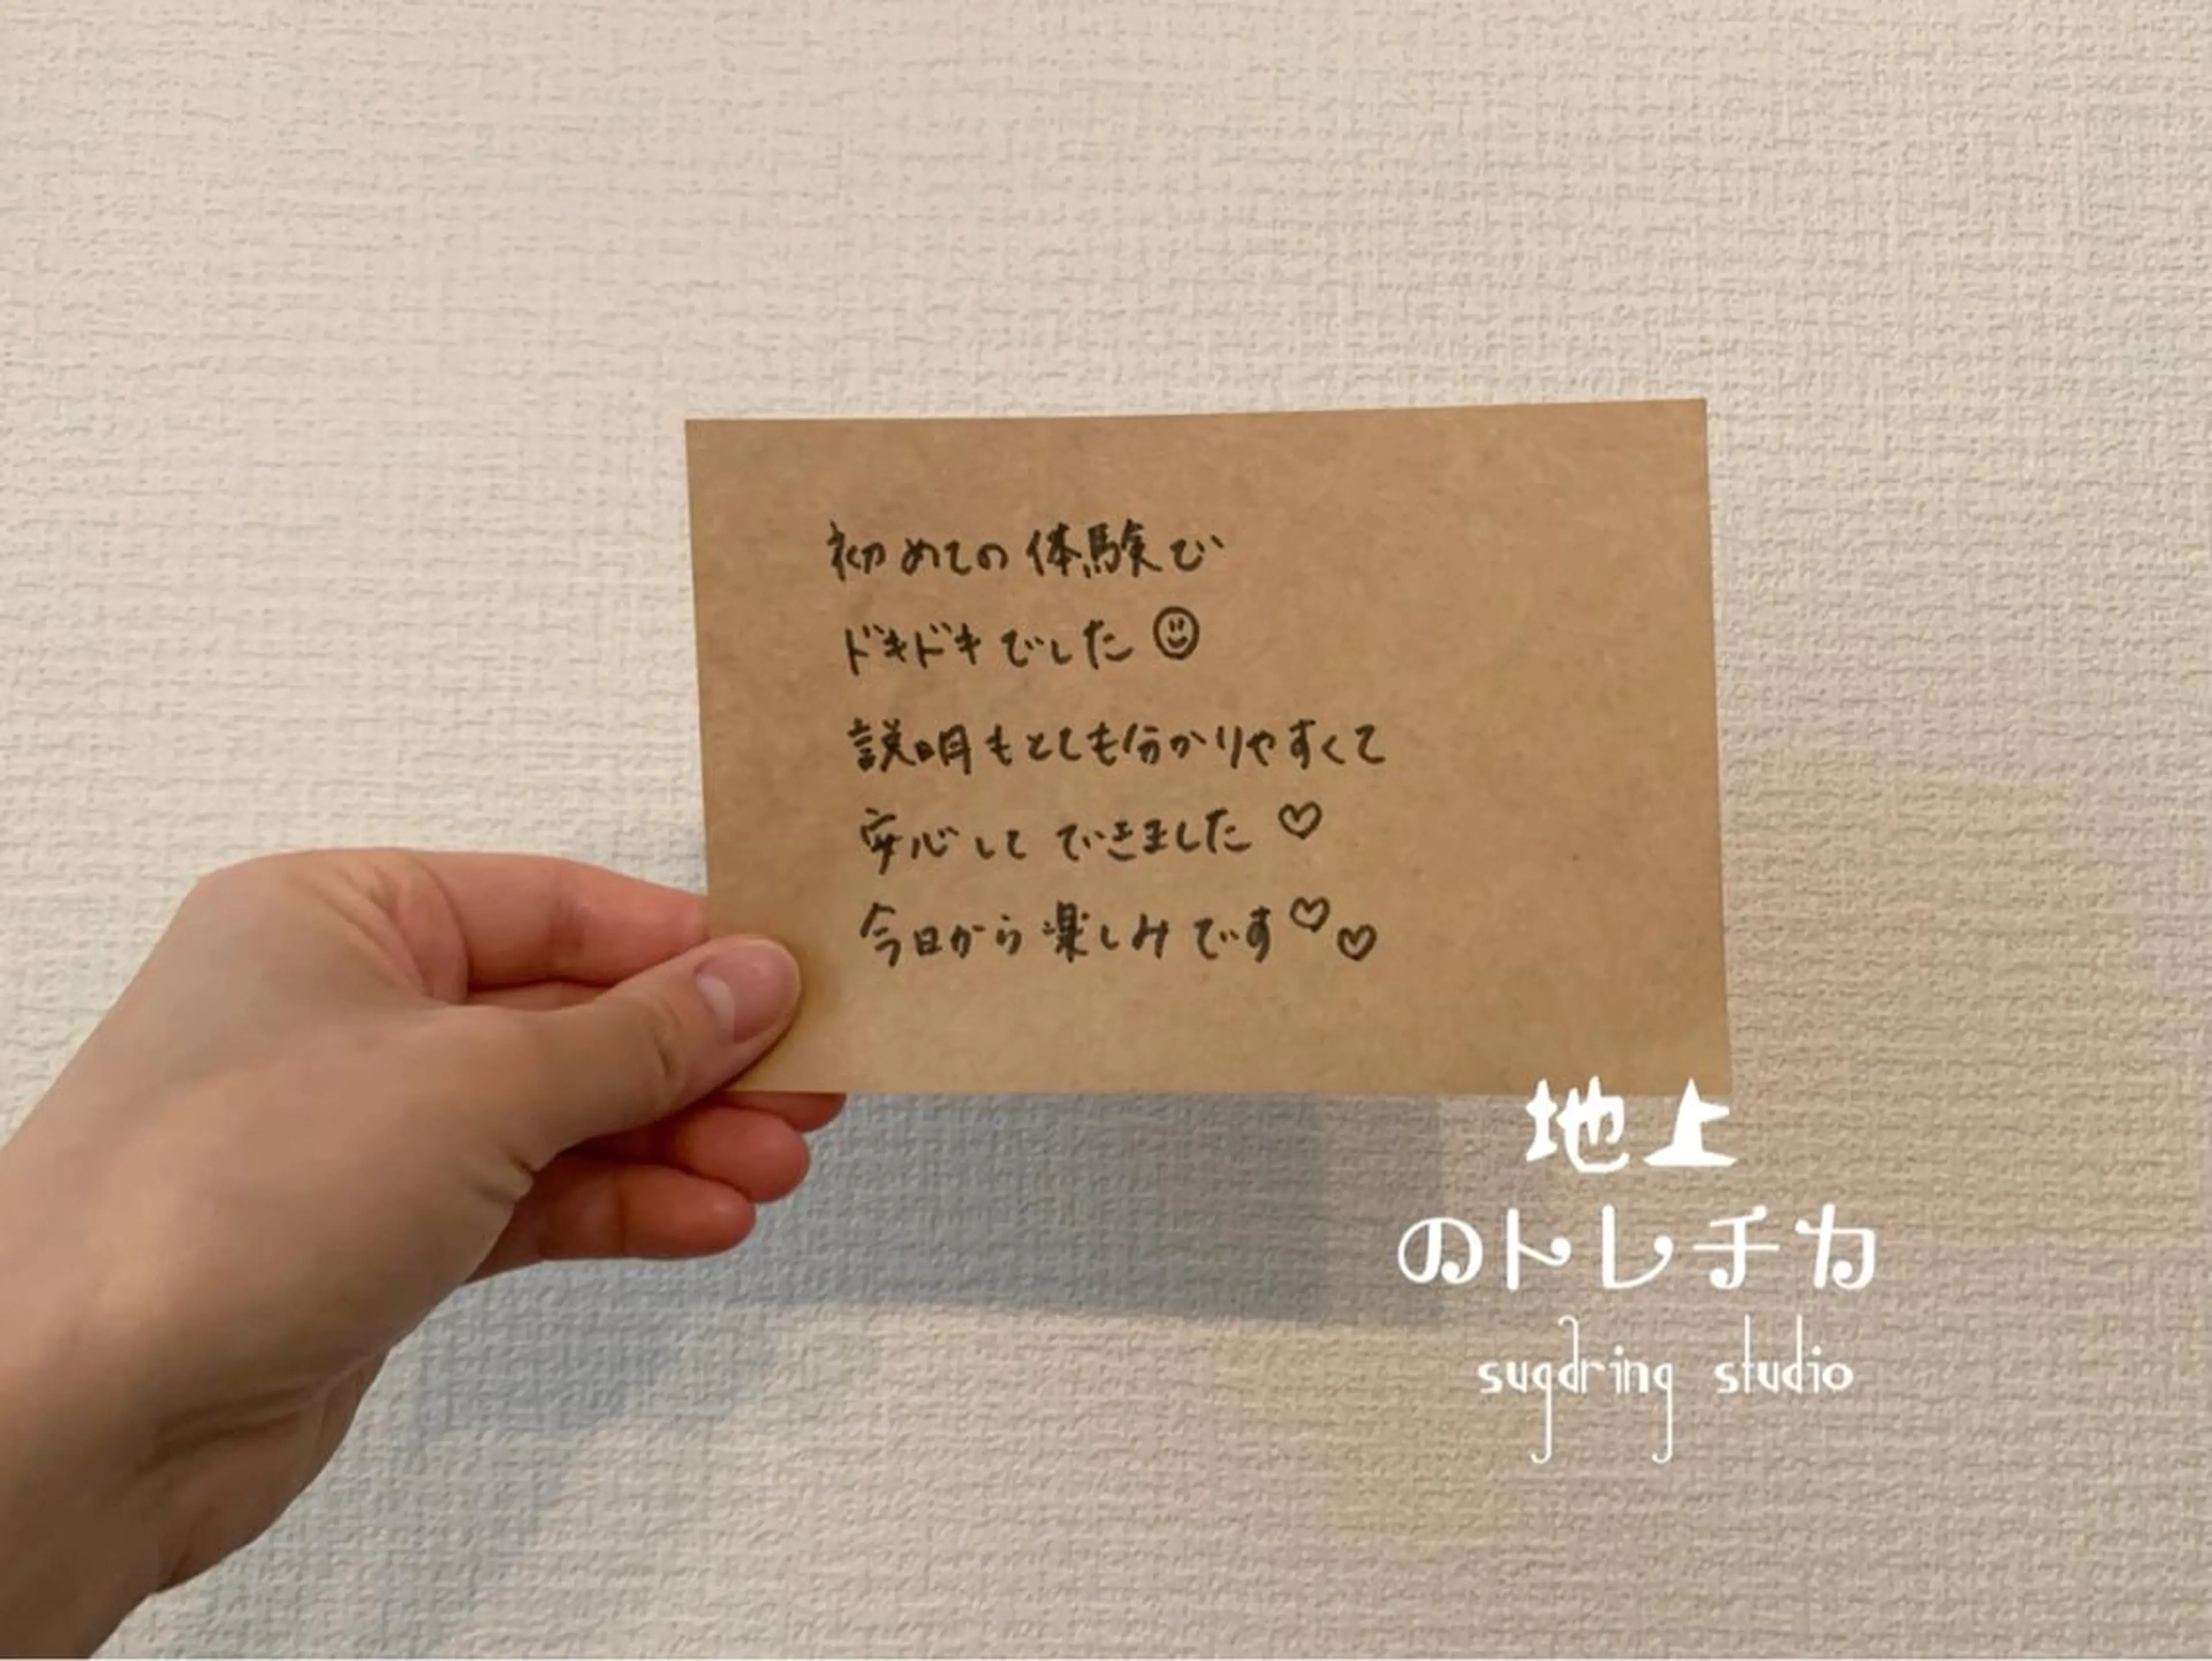 初めての体験で
ドキドキでした☺
説明もとても分かりやすくて
安心してできました♡
今日から楽しみです♡♡
地上
のトレチカ
sugdring studio